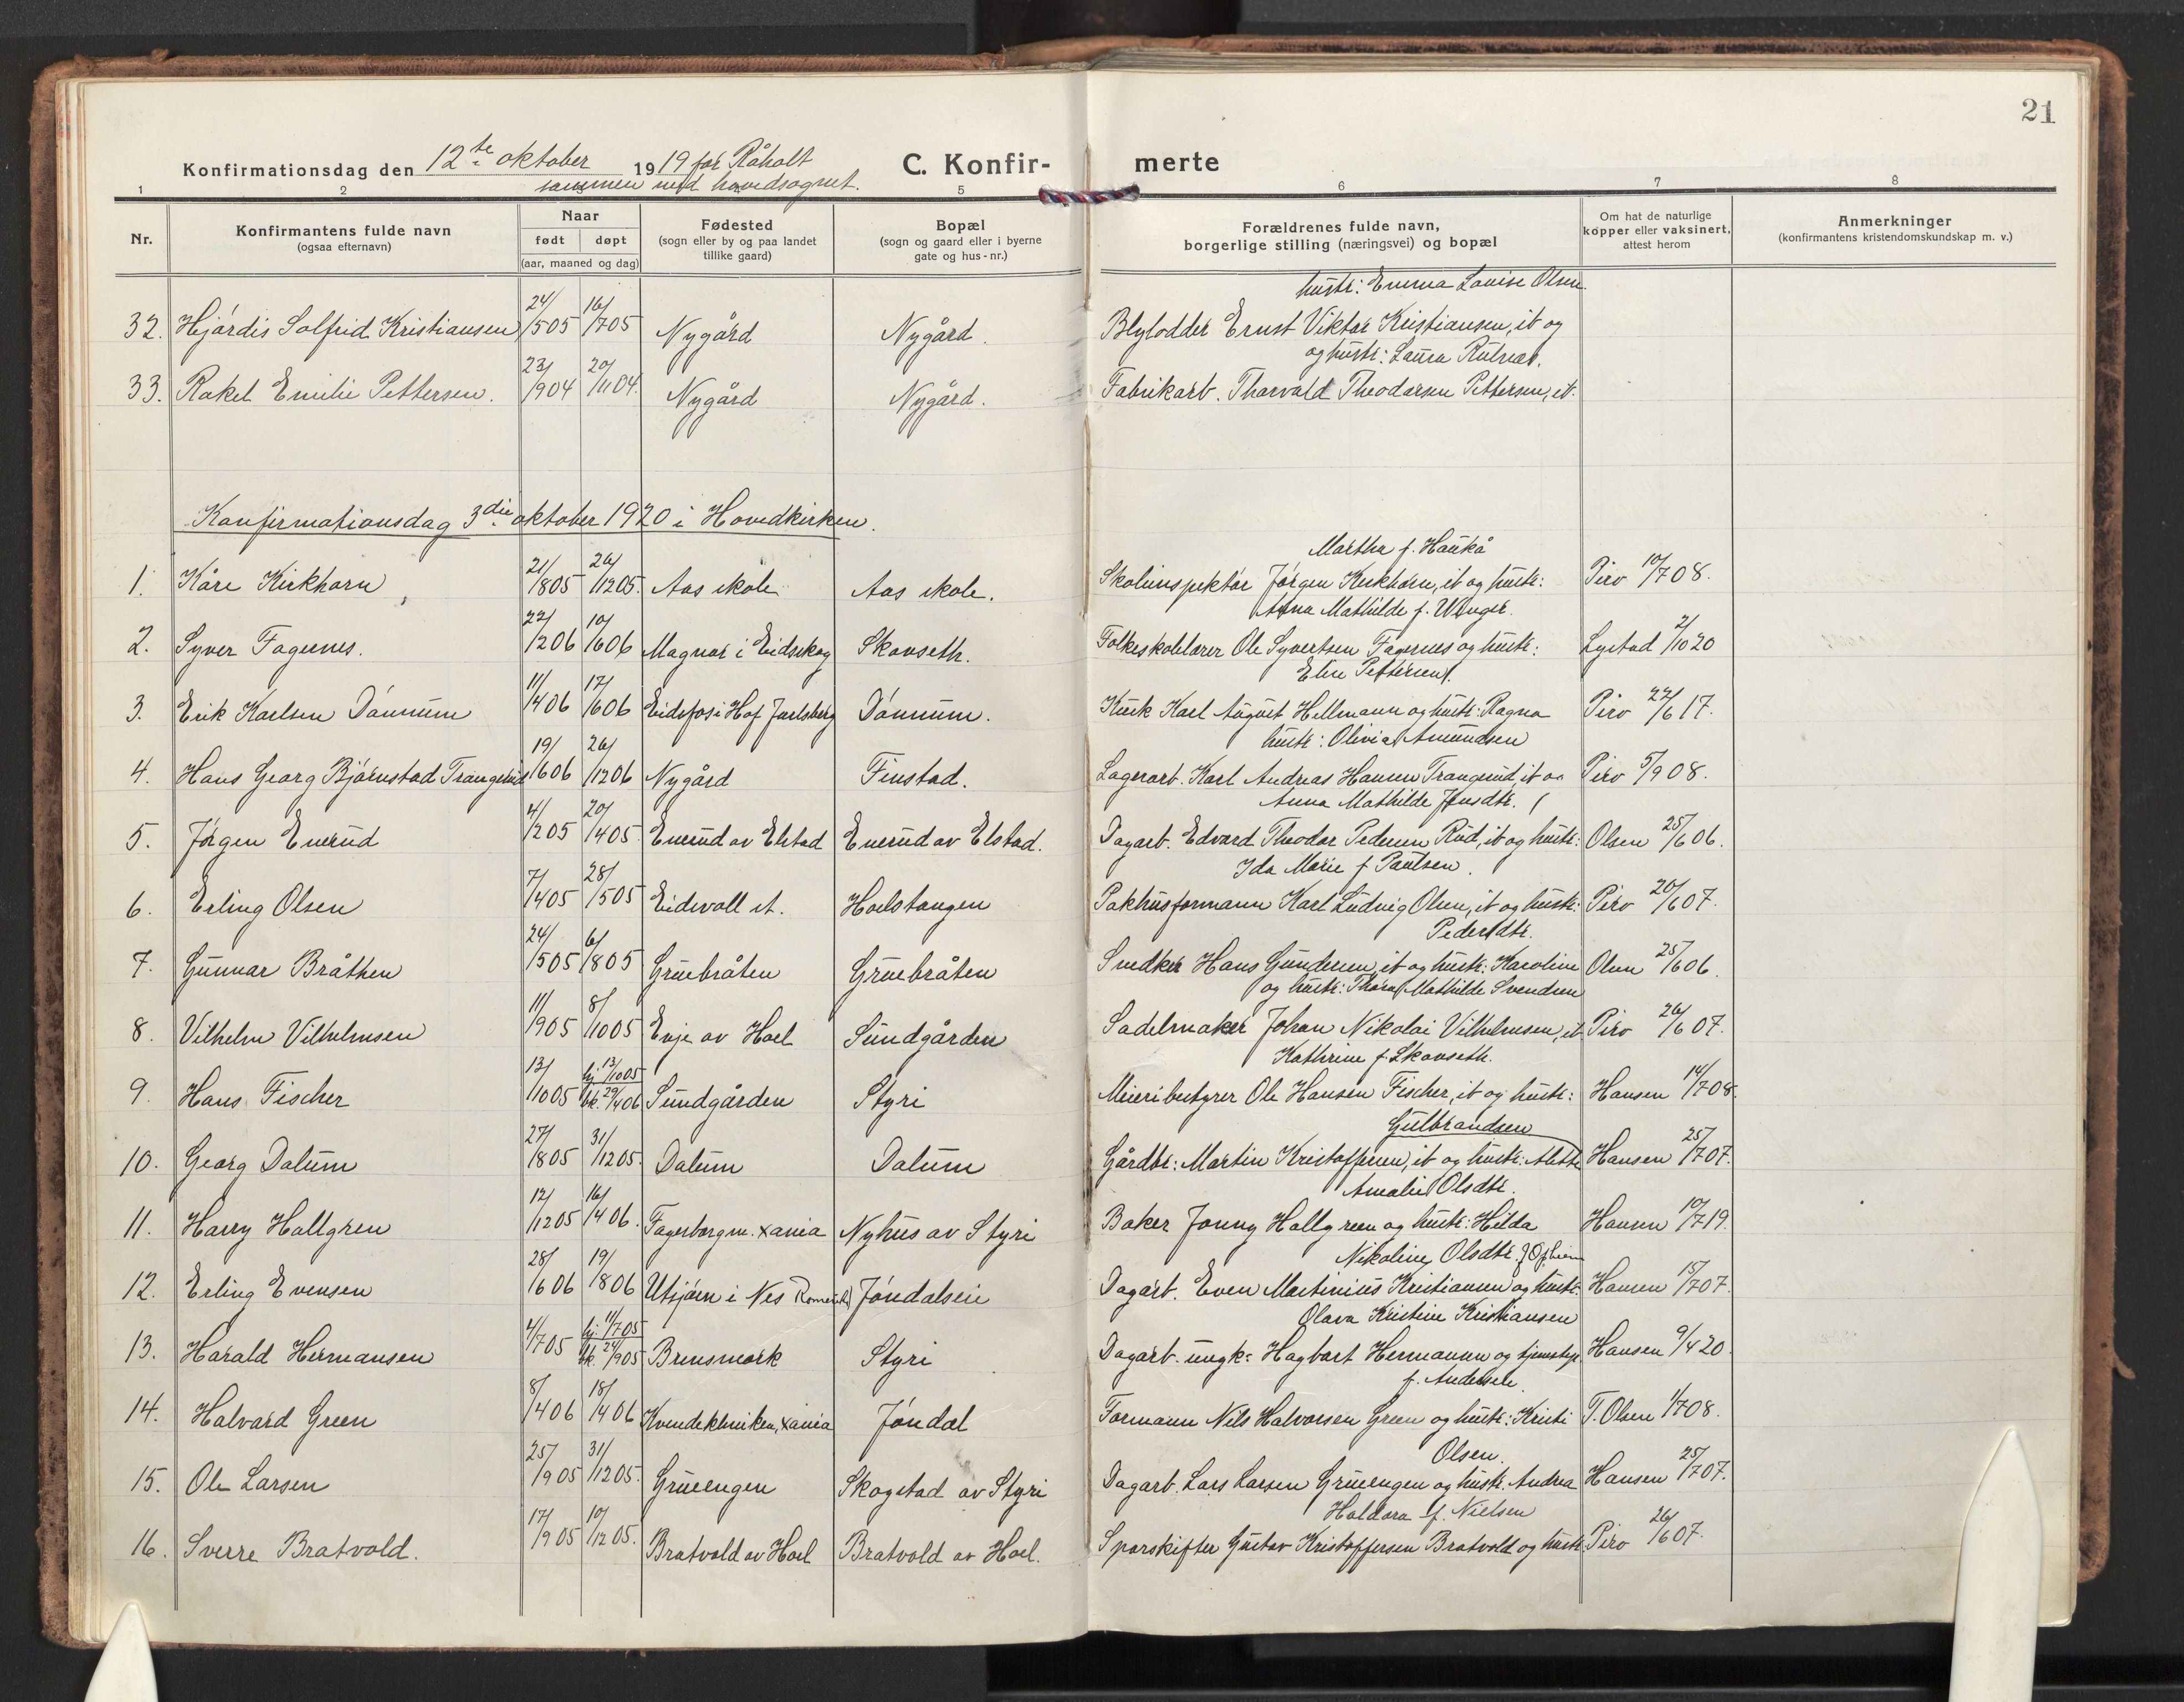 21
Konfirmationsdag den 12te oktober 1919 for Råholt C. Konfir- merte
sammen med hovedsognet.
1 2 5 6 7 8
Nr. Konfirmantens fulde navn (ogsaa efternavn) Naar født døpt (aar, maaned og dag) Fødested (sogn eller by og paa landet tillike gaard) Bopæl (sogn og gaard eller i byerne gate og hus-nr.) Forældrenes fulde navn, borgerlige stilling (næringsvei) og bopæl Om hat de naturlige kopper eller vaksinert, attest herom Anmerkninger (konfirmantens kristendomskundskap m. v.)
hustr: Emma Lovise Olsen.
32. Hjördis Solfrid Kristiansen 24/505 16/705 Nygård Nygård. Blylodder Ernst Viktor Kristiansen, it og
og hustr: Laura
33. Rakel Emilie Pettersen. 23/904 20/1104 Nygård Nygård. Fabrikarb. Thorvald Theodorsen Pettersen, it.
Konfirmationsdag 3die oktober 1920 i Hovedkirken.
Martha f. Haukå
1. Kåre Kirkhorn 21/805 26/1205. Aas skole Aas skole. Skoleinspektör Jørgen Kirkhorn, it og hustr: Piro 10/708.
Anna Mathilde f. Winger.
2. Syver Fagernes. 22/206 10/606 Magnor i Eidskog Skovseth. Folkeskolelærer Ole Syvertsen Fagernes og hustr: Lystad 2/1020
Elise Pettersen.
3. Erik Karlsen Dönnum 11/406 17/606 Eidsfos i Hof Jarlsberg Dönnum. Kusk Karl August Hellmann og hustr: Ragna Piro 22/617.
hustr: Olivia Amundsen
4. Hans Georg Björnstad Trangerud 19/606 26/1206 Nygård Finstad. Lagerarb. Karl Andreas Hansen Trangerud, it og Piro 5/908.
Anna Mathilde Jensdtr.
5. Jörgen Enerud 4/205 20/405 Enerud av Elstad Enerud av Elstad. Dagarb. Edvard Theodor Pedersen Rud, it og hustr: Olsen 25/606.
Ida Marie f. Paulsen.
6. Erling Olsen 7/405 28/505 Eidsvoll st. Hoelstangen Pakhusformann Karl Ludvig Olsen, it og hustr: Piro 20/607.
Pedersdtr.
7. Gunnar Bråthen 24/505 6/805 Gruebråten Gruebråten Snedker Hans Gundersen, it og hustr: Karoline Olsen 25/606.
og hustr: Thora Mathilde Svendsen
8. Vilhelm Vilhelmsen 11/905 8/1005 Evje av Hoel Sundgården Sadelmaker Johan Nikolai Vilhelmsen, it Piro 26/607.
Kathrine f. Skovseth.
9. Hans Fischer 13/1005 hj. 13/1005 bk. 29/406 Sundgården Styri Meieribestyrer Ole Hansen Fischer, it og hustr: Hansen 14/708.
Gulbrandsen
10. Georg Dalum 27/805 31/1205. Dalum Dalum Gårdbr: Martin Kristoffersen, it og hustr: Alette Hansen 25/707.
Amalie Olsdtr.
11. Harry Hallgren 12/1205 16/406. Fagerborg m. Xania Nyhus av Styri Baker Jonny Hallgreen og hustr: Hilda Hansen 10/719.
Nikoline Olsdtr. f. Opheim
12. Erling Evensen 28/606 19/806 Utsjöen i Nes Romerike Jöndalseie Dagarb. Even Martinius Kristiansen og hustr: Hansen 15/707
Olava Kristine Kristiansen
13. Harald Hermansen 4/705 hj. 11/705 bk. 24/905 Brensmork Styri Dagarb. ungk: Hagbart Hermansen og tjenestep. Hansen 9/420.
f. Andersen.
14. Halvard Green 8/406 18/406 Kvindeklinikken, Xania Jöndal Formann Nils Halvorsen Green og hustr: Kristi T. Olsen 1/708.
Olsen.
15. Ole Larsen 25/905 31/1205. Grueengen Skogstad av Styri Dagarb. Lars Larsen Grueengen og hustr. Andrea Hansen 25/707.
Haldora f. Nielsen
16. Sverre Bratvold. 17/905 10/1205. Bratvold av Hoel Bratvold av Hoel. Sporskifter Gustav Kristoffersen Bratvold og hustr Piro 26/607.